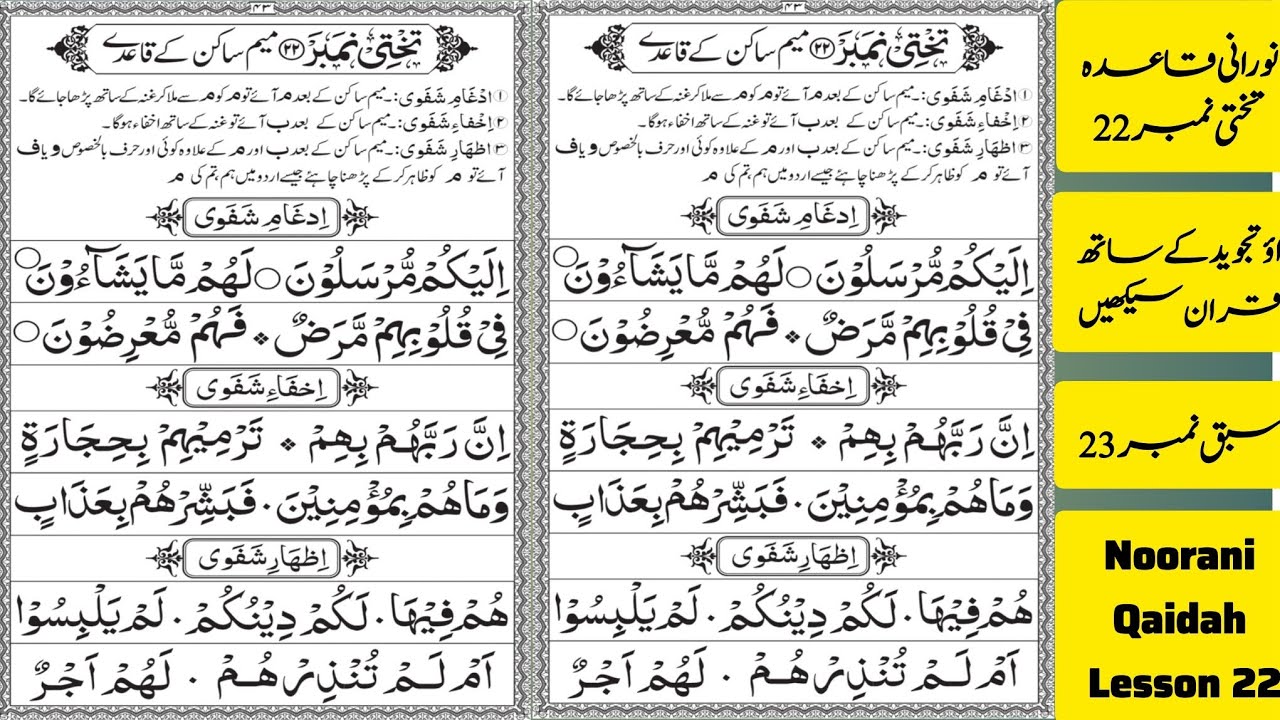 ۴۳
تختی نمبر ۲۲ میم ساکن کے قاعدے
۱ اِدْغَامِ شَفَوِی: ۔ میم ساکن کے بعد م آئے تو م کو م سے ملا کر غنہ کے ساتھ پڑھا جائے گا۔
۲ اِخْفَاءِ شَفَوِی: ۔ میم ساکن کے بعد ب آئے تو غنہ کے ساتھ اخفاء ہوگا۔
۳ اِظْهَارِ شَفَوِی: ۔ میم ساکن کے بعد ب اور م کے علاوہ کوئی اور حرف بالخصوص و یا ف
آئے تو م کو ظاہر کر کے پڑھنا چاہئے جیسے اردو میں ہم تم کی م
اِدغَامِ شَفَوِی
اِلَيْكُمْ مُّرْسَلُوْنَ ○ لَهُمْ مَّا يَشَآءُوْنَ ○
فِيْ قُلُوْبِهِمْ مَّرَضٌ * فَهُمْ مُّعْرِضُوْنَ ○
اِخفَاءِ شَفَوِی
اِنَّ رَبَّهُمْ بِهِمْ * تَرْمِيْهِمْ بِحِجَارَةٍ
وَمَا هُمْ بِمُؤْمِنِيْنَ ۰ فَبَشِّرْهُمْ بِعَذَابٍ
اِظهَارِ شَفَوِی
هُمْ فِيْهَا ۰ لَكُمْ دِيْنُكُمْ ۰ لَمْ يَلْبِسُوْا
اَمْ لَمْ تُنْذِرْهُمْ ۰ لَهُمْ اَجْرٌ
۴۳
تختی نمبر ۲۲ میم ساکن کے قاعدے
۱ اِدْغَامِ شَفَوِی: ۔ میم ساکن کے بعد م آئے تو م کو م سے ملا کر غنہ کے ساتھ پڑھا جائے گا۔
۲ اِخْفَاءِ شَفَوِی: ۔ میم ساکن کے بعد ب آئے تو غنہ کے ساتھ اخفاء ہوگا۔
۳ اِظْهَارِ شَفَوِی: ۔ میم ساکن کے بعد ب اور م کے علاوہ کوئی اور حرف بالخصوص و یا ف
آئے تو م کو ظاہر کر کے پڑھنا چاہئے جیسے اردو میں ہم تم کی م
اِدغَامِ شَفَوِی
اِلَيْكُمْ مُّرْسَلُوْنَ ○ لَهُمْ مَّا يَشَآءُوْنَ ○
فِيْ قُلُوْبِهِمْ مَّرَضٌ * فَهُمْ مُّعْرِضُوْنَ ○
اِخفَاءِ شَفَوِی
اِنَّ رَبَّهُمْ بِهِمْ * تَرْمِيْهِمْ بِحِجَارَةٍ
وَمَا هُمْ بِمُؤْمِنِيْنَ ۰ فَبَشِّرْهُمْ بِعَذَابٍ
اِظهَارِ شَفَوِی
هُمْ فِيْهَا ۰ لَكُمْ دِيْنُكُمْ ۰ لَمْ يَلْبِسُوْا
اَمْ لَمْ تُنْذِرْهُمْ ۰ لَهُمْ اَجْرٌ
نورانی قاعدہ
تختی نمبر 22
اؤ تجوید کے ساتھ
قران سیکھیں
سبق نمبر 23
Noorani
Qaidah
Lesson 22